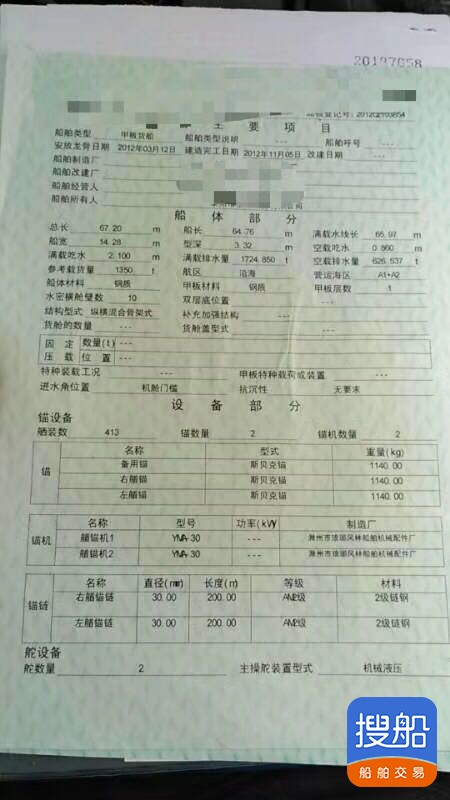 20197058
登记号: 2012C2103854
主 要 项 目
船舶类型 甲板货船 船舶类型说明 --- 船舶呼号 ---
安放龙骨日期 2012年03月12日 建造完工日期 2012年11月05日 改建日期 ---
船舶制造厂
船舶改建厂
船舶经营人
船舶所有人
船 体 部 分
总长 67.20 m 船长 64.76 m 满载水线长 65.97 m
船宽 14.28 m 型深 3.32 m 空载吃水 0.860 m
满载吃水 2.100 m 满载排水量 1724.850 t 空载排水量 626.537 t
参考载货量 1350 t 航区 沿海 营运海区 A1+A2
船体材料 钢质 甲板材料 钢质 甲板层数 1
水密横舱壁数 10 双层底位置
结构型式 纵横混合骨架式 补充加强结构 ---
货舱的数量 --- 货舱盖型式 ---
固定 数量(t) ---
压载 位置 ---
特种装载工况 --- 甲板特种载荷或装置 ---
进水角位置 机舱门槛 抗沉性 无要求
设 备 部 分
锚设备
舾装数 413 锚数量 2 锚机数量 2
锚 名称 型式 重量(kg)
备用锚 斯贝克锚 1140.00
右艏锚 斯贝克锚 1140.00
左艏锚 斯贝克锚 1140.00
锚机 名称 型号 功率(kW) 制造厂
艏锚机1 YMA-30 --- 滁州市琅琊风林船舶机械配件厂
艏锚机2 YMA-30 --- 滁州市琅琊风林船舶机械配件厂
锚链 名称 直径(mm) 长度(m) 等级 材料
右艏锚链 30.00 200.00 AM2级 2级链钢
左艏锚链 30.00 200.00 AM2级 2级链钢
舵设备
舵数量 2 主操舵装置型式 机械液压
搜船
船舶交易